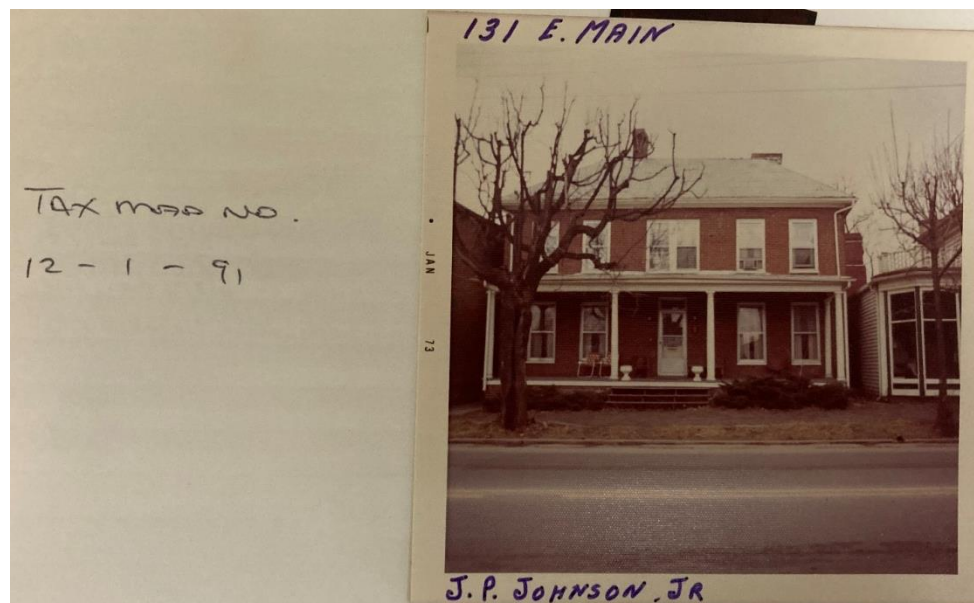 TAX MAP NO.
12 - 1 - 91
131 E. MAIN
• JAN 73
J.P. JOHNSON, JR